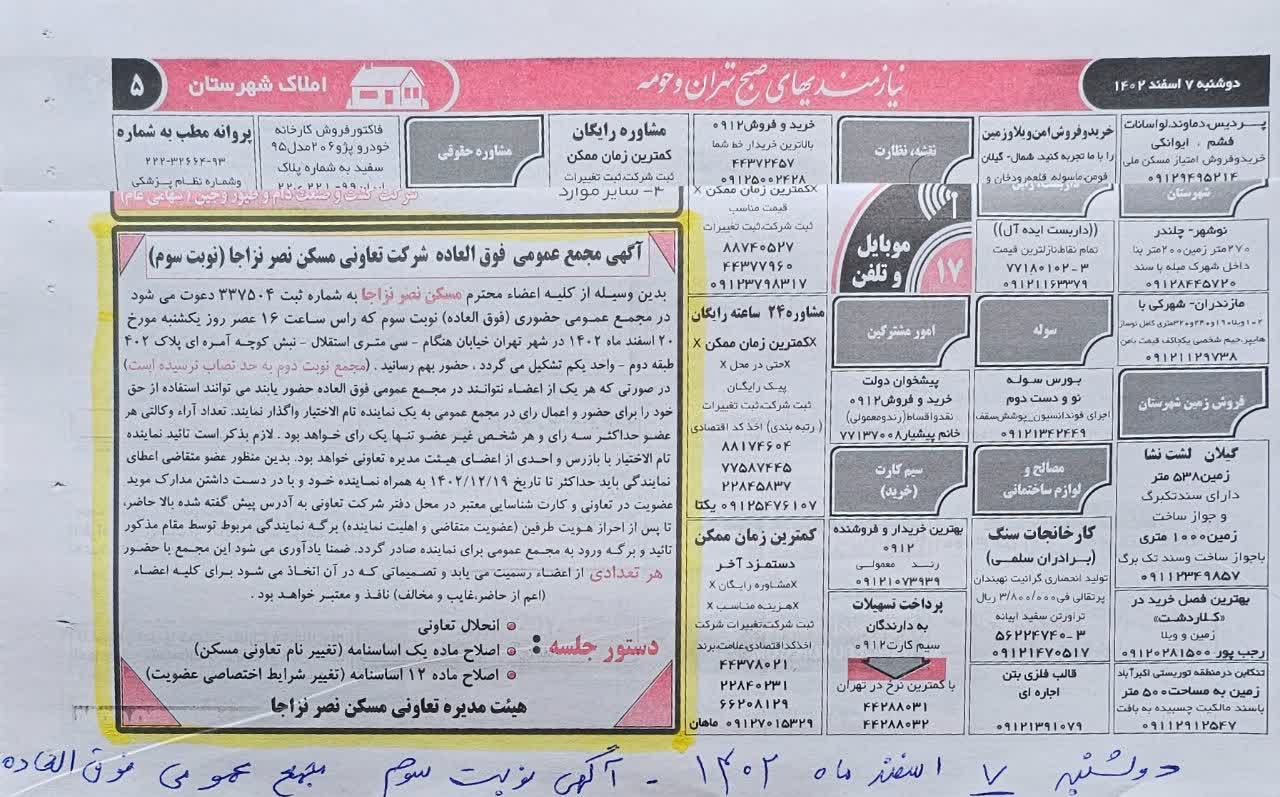 دوشنبه ۷ اسفند ۱۴۰۲
نیازمندیهای صبح تهران و حومه
املاک شهرستان
۵
پردیس، دماوند، لواسانات
فشم ، ایوانکی
خریدوفروش امتیاز مسکن ملی
۰۹۱۲۹۴۹۵۲۱۴
شهرستان
نوشهر- چلندر
۲۷۰متر زمین۲۰۰متر بنا
داخل شهرک مبله با سند
۰۹۱۲۸۴۴۵۷۲۰
مازندران- شهرکی با
هایپر،حیم شخصی یکجاکف قیمت بامن
۰۹۱۲۱۱۲۹۷۳۸
فروش زمین شهرستان
گیلان لشت نشا
زمین۵۳۸ متر
دارای سندتکبرگ
و جواز ساخت
زمین۱۰۰۰ متری
باجواز ساخت وسند تک برگ
۰۹۱۱۲۳۴۹۸۵۷
بهترین فصل خرید در
«کلاردشت»
زمین و ویلا
رجب پور ۰۹۱۲۰۲۸۱۵۰۰
تنکابن درمنطقه توریستی اکبرآباد
زمین به مساحت۵۰۰ متر
باسند مالکیت چسبیده به بافت
۰۹۱۱۲۹۱۲۵۴۷
خریدوفروش امن ویلا وزمین
را با ما تجربه کنید. شمال- گیلان
فومن،ماسوله، قلعه‌رودخان و
((داربست ایده آل))
تمام نقاط،نازلترین قیمت
۷۷۱۸۰۱۰۲-۳
۰۹۱۲۱۱۶۳۳۷۹
سوله
بورس سوله
نو و دست دوم
اجرای فونداسیون_پوشش‌سقف
۰۹۱۲۱۳۴۲۴۴۹
مصالح و
لوازم ساختمانی
کارخانجات سنگ
(برادران سلمی)
تولید انحصاری گرانیت نهبندان
پرتقالی فی۳/۸۰۰/۰۰۰ ریال
تراورتن سفید ابیانه
۵۶۲۲۴۷۴۰-۳
۰۹۱۲۱۴۷۰۵۱۷
قالب فلزی بتن
اجاره ای
۰۹۱۲۱۳۹۱۰۷۹
نقشه، نظارت
موبایل
و تلفن
۱۷
امور مشترکین
پیشخوان دولت
خرید و فروش۰۹۱۲
نقدواقساط(رندومعمولی)
خانم پیشیار۷۷۱۳۷۰۰۸
سیم کارت
(خرید)
بهترین خریدار و فروشنده
۰۹۱۲
رند معمولی
۰۹۱۲۱۰۷۳۹۳۹
پرداخت تسهیلات
به دارندگان
سیم کارت۰۹۱۲
با کمترین نرخ در تهران
۴۴۲۸۸۰۳۱
۴۴۲۸۸۰۳۲
خرید و فروش۰۹۱۲
بالاترین خریدار خط شما
۴۴۳۷۲۴۵۷
۰۹۱۲۵۰۰۲۴۲۸
xکمترین زمان ممکن x
قیمت مناسب
ثبت شرکت،ثبت تغییرات
۸۸۷۴۰۵۲۷
۴۴۳۷۷۹۶۰
۰۹۱۲۳۷۹۸۳۱۷
مشاوره۲۴ ساعته رایگان
xکمترین زمان ممکن x
xحتی در محل x
پیک رایگان
ثبت شرکت،ثبت تغییرات
( رتبه بندی) اخذ کد اقتصادی
۸۸۱۷۴۶۰۴
۷۷۵۸۷۴۴۵
۲۲۸۴۵۸۳۷
۰۹۱۲۵۴۷۶۱۰۷ یکتا
کمترین زمان ممکن
دستمزد آخر
xمشاوره رایگان x
xهزینه مناسب x
ثبت شرکت،تغییرات شرکت
اخذکداقتصادی،علامت،برند
۴۴۳۷۸۰۲۱
۲۲۸۴۰۲۳۱
۶۶۲۰۸۱۲۹
۰۹۱۲۷۰۱۵۳۲۹ ماهان
مشاوره رایگان
کمترین زمان ممکن
ثبت شرکت،ثبت تغییرات
مشاوره حقوقی
فاکتورفروش کارخانه
خودرو پژو۲۰۶مدل۹۵
سفید به شماره پلاک
پروانه مطب به شماره
۲۲۲-۳۲۶۶۴-۹۳
وشماره نظام پزشکی
۴- سایر موارد
شرکت کشت و صنعت دام و طیور وجین (سهامی عام)
آگهی مجمع عمومی فوق العاده شرکت تعاونی مسکن نصر نزاجا (نوبت سوم)
بدین وسیله از کلیه اعضاء محترم مسکن نصر نزاجا به شماره ثبت ۳۳۷۵۰۴ دعوت می شود
در مجمع عمومی حضوری (فوق العاده) نوبت سوم که راس ساعت ۱۶ عصر روز یکشنبه مورخ
۲۰ اسفند ماه ۱۴۰۲ در شهر تهران خیابان هنگام - سی متری استقلال - نبش کوچه آمره ای پلاک ۴۰۲
طبقه دوم - واحد یکم تشکیل می گردد ، حضور بهم رسانید . (مجمع نوبت دوم به حد نصاب نرسیده است)
در صورتی که هر یک از اعضاء نتوانند در مجمع عمومی فوق العاده حضور یابند می توانند استفاده از حق
خود را برای حضور و اعمال رای در مجمع عمومی به یک نماینده تام الاختیار واگذار نمایند. تعداد آراء وکالتی هر
عضو حداکثر سه رای و هر شخص غیر عضو تنها یک رای خواهد بود . لازم بذکر است تائید نماینده
تام الاختیار با بازرس و احدی از اعضای هیئت مدیره تعاونی خواهد بود. بدین منظور عضو متقاضی اعطای
نمایندگی باید حداکثر تا تاریخ ۱۴۰۲/۱۲/۱۹ به همراه نماینده خود و با در دست داشتن مدارک موید
عضویت در تعاونی و کارت شناسایی معتبر در محل دفتر شرکت تعاونی به آدرس پیش گفته شده بالا حاضر،
تا پس از احراز هویت طرفین (عضویت متقاضی و اهلیت نماینده) برگه نمایندگی مربوط توسط مقام مذکور
تائید و برگه ورود به مجمع عمومی برای نماینده صادر گردد. ضمنا یادآوری می شود این مجمع با حضور
هر تعدادی از اعضاء رسمیت می یابد و تصمیماتی که در آن اتخاذ می شود برای کلیه اعضاء
(اعم از حاضر،غایب و مخالف) نافذ و معتبر خواهد بود .
دستور جلسه :
انحلال تعاونی
اصلاح ماده یک اساسنامه (تغییر نام تعاونی مسکن)
اصلاح ماده ۱۲ اساسنامه (تغییر شرایط اختصاصی عضویت)
هیئت مدیره تعاونی مسکن نصر نزاجا
دوشنبه ۷ اسفند ماه ۱۴۰۲ - آگهی نوبت سوم مجمع عمومی فوق العاده